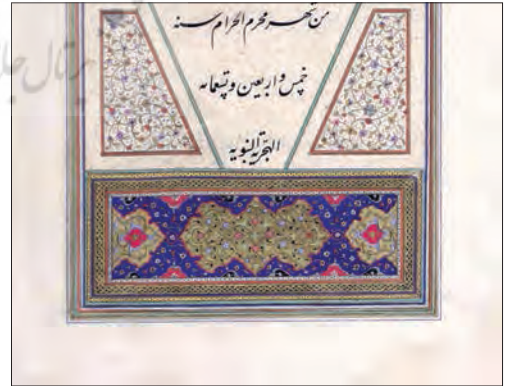 من شهر محرم الحرام سنه
خمس و اربعین و تسعمائه
الهجریه النبویه
پرتال جا